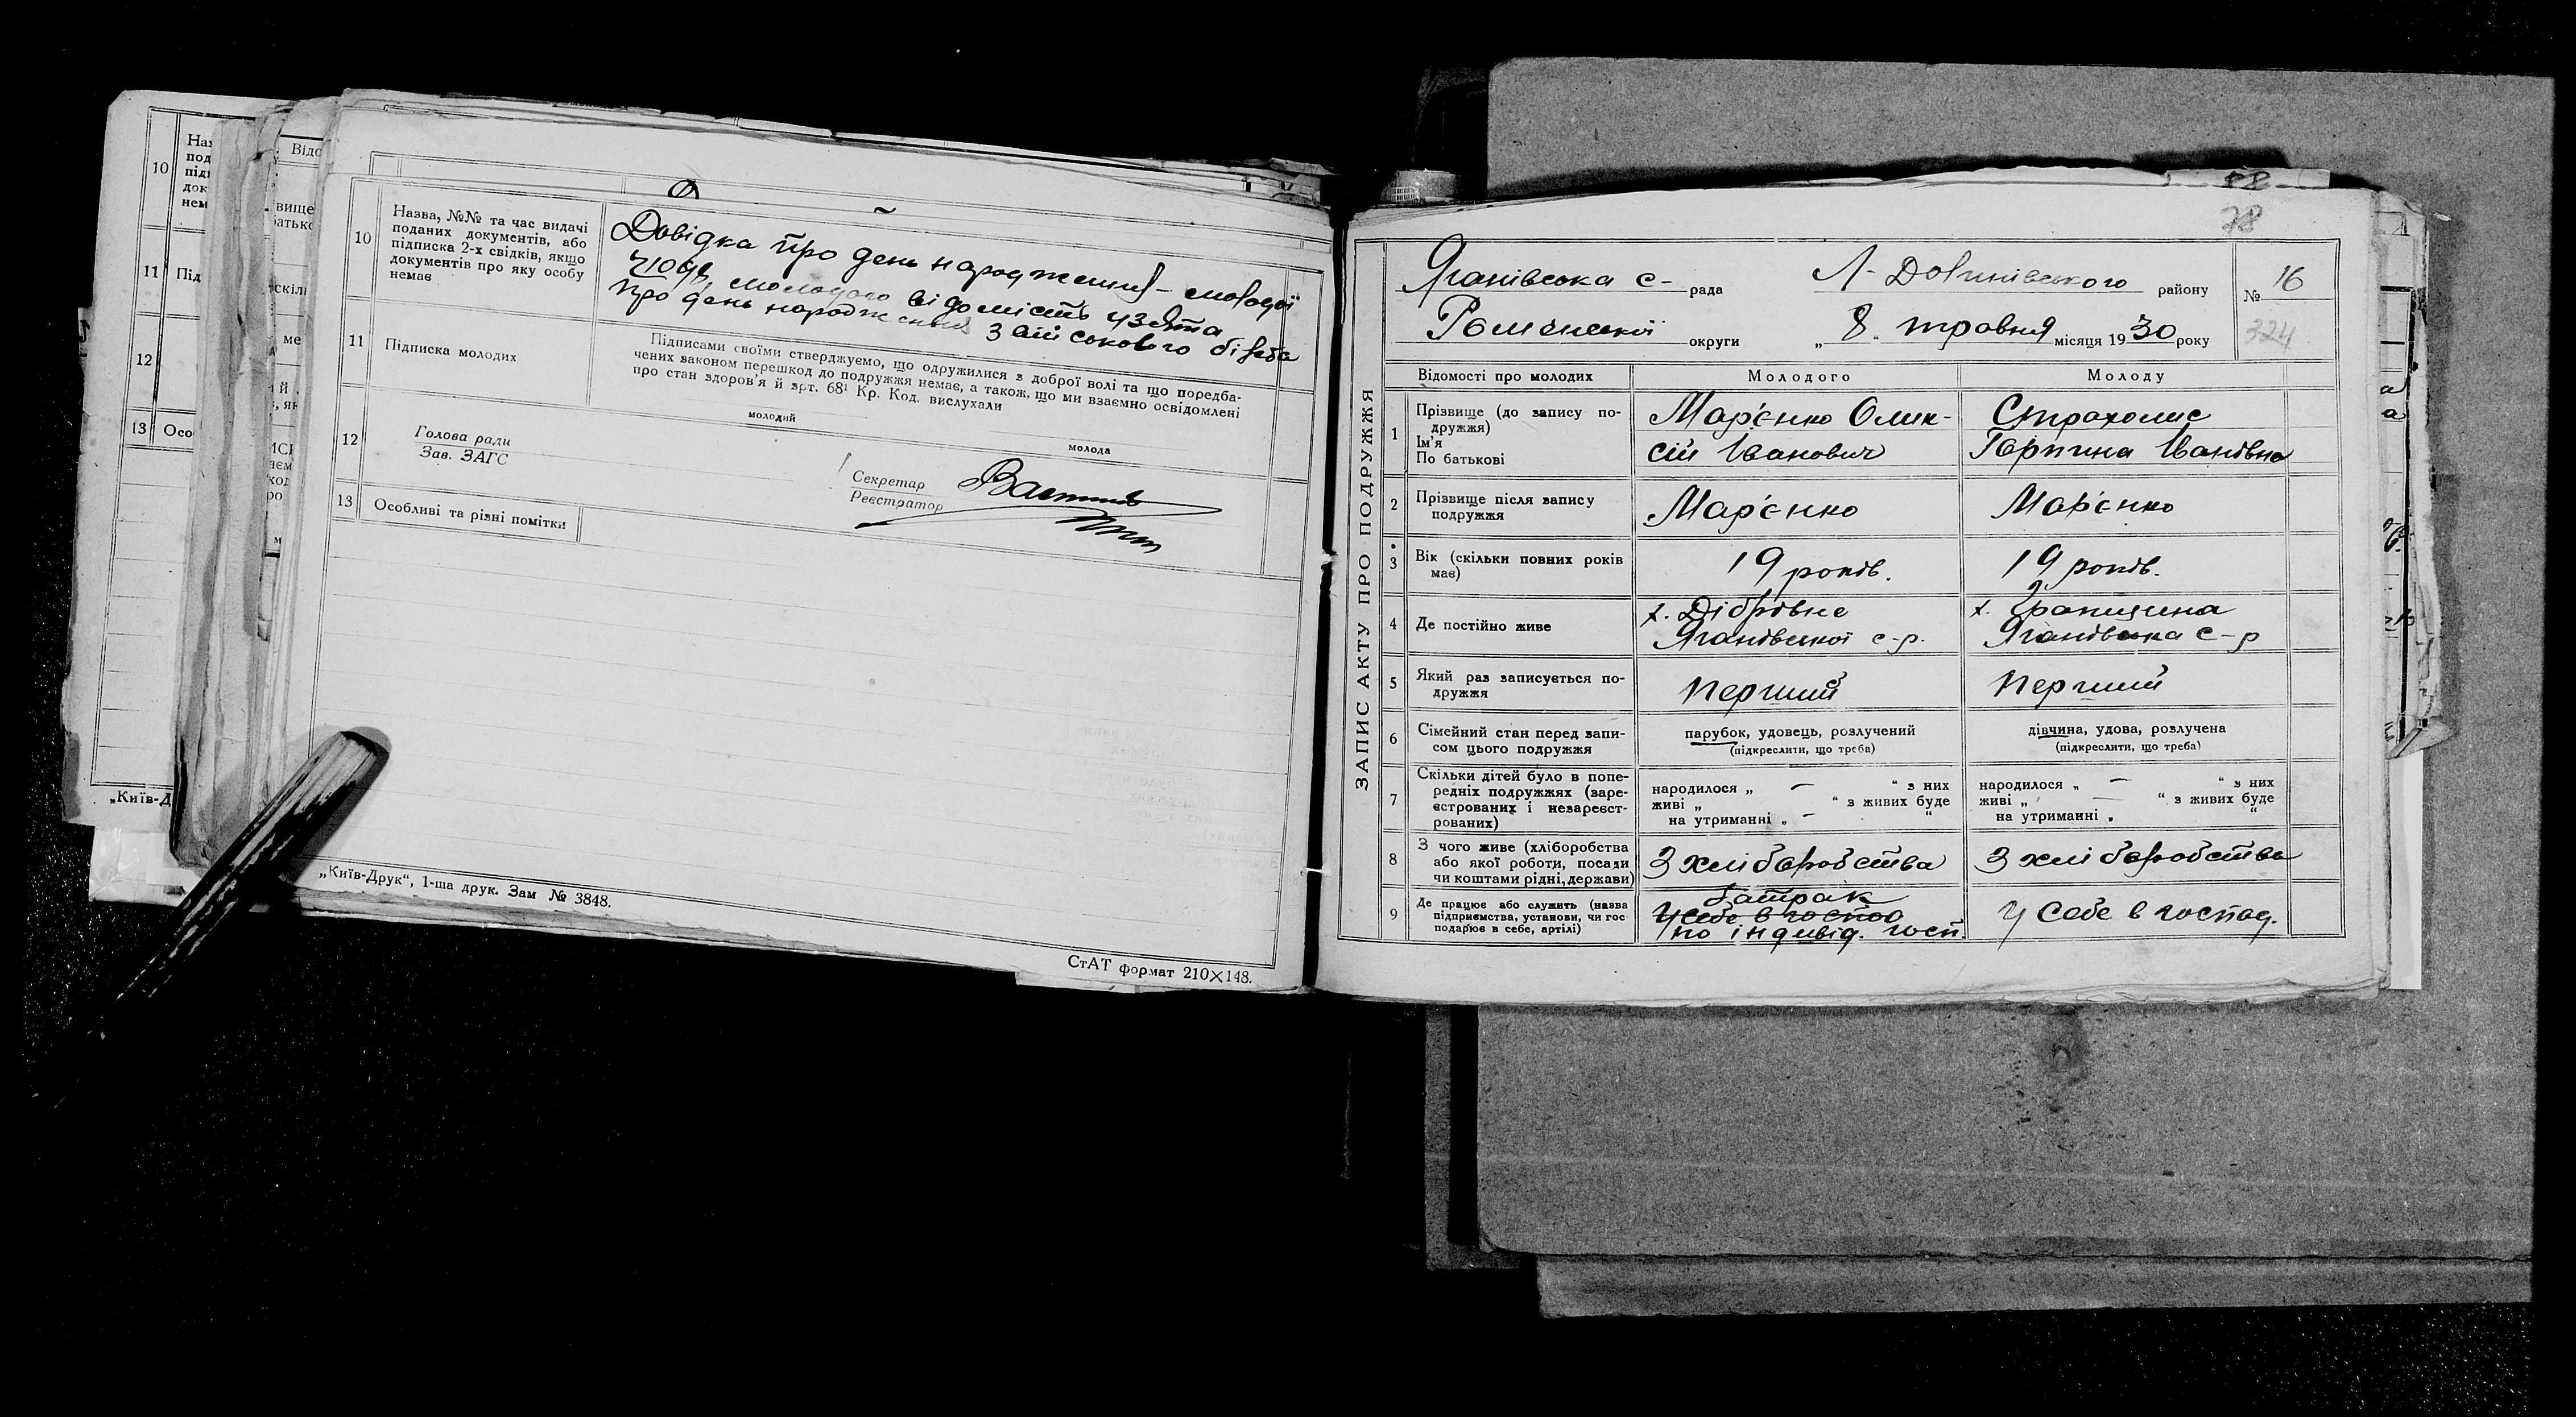 10
11
Під
12
13
Осо
„Київ-Д
10
Назва, №№ та час видачі
поданих документів, або
підписка 2-х свідків, якщо
документів про яку особу
немає
Довідка про день народження - молодої
молодого відомість узята
про день народження з військового білета
11
Підписка молодих
Підписами своїми стверджуємо, що одружилися з доброї волі та що поредба-
чених законом перешкод до подружжя немає, а також, що ми взаємно освідомлені
про стан здоров'я й арт. 68¹ Кр. Код. вислухали
молодий
молода
12
Голова ради
Зав. ЗАГС
Секретар
Реєстратор
13
Особливі та різні помітки
„Київ-Друк“, 1-ша друк. Зам № 3848.
СтАТ формат 210×148.
78
ЗАПИС АКТУ ПРО ПОДРУЖЖЯ
Яганівська с- рада
Л-Долинівського району
№ 16
Роменської округи
„ 8 “ травня місяця 1930 року
324
Відомості про молодих
Молодого
Молоду
1
Прізвище (до запису по-
дружжя)
Ім'я
По батькові
Мар'єнко Олик-
сій Іванович
Страхолис
Горпина Іванівна
2
Прізвище після запису
подружжя
Мар'єнко
Мар'єнко
3
Вік (скільки повних років
має)
19 років.
19 років.
4
Де постійно живе
х. Дібрівне
Яганівської с-р.
х.
Яганівська с-р
5
Який раз записується по-
дружжя
перший
перший
6
Сімейний стан перед запи-
сом цього подружжя
парубок, удовець, розлучений
(підкреслити, що треба)
дівчина, удова, розлучена
(підкреслити, що треба)
7
Скільки дітей було в попе-
редніх подружжях (заре-
єстрованих і незареєст-
рованих)
народилося „ — “ з них
живі „ “ з живих буде
на утриманні „ — “
народилося „ — “ з них
живі „ — “ з живих буде
на утриманні „ “
8
З чого живе (хліборобства
або якої роботи, посади
чи коштами рідні, держави)
З хліборобства
З хліборобства
9
Де працює або служить (назва
підприємства, установи, чи гос
подарює в себе, артілі)
батрак
У себе в госпо
по індивід. госп.
У себе в господ.